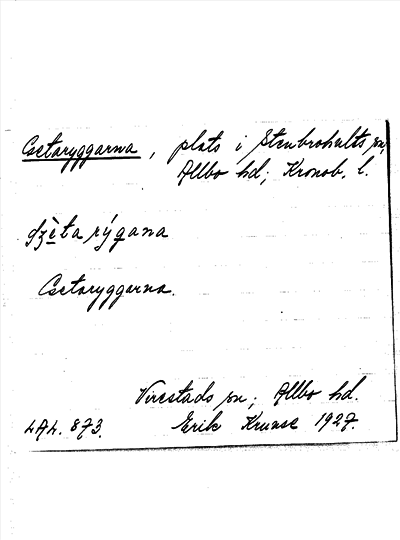 Gsetaryggarna, plats i Stenbrohults sn,
Allbo hd; Kronob. l.
rýgana
Gsetaryggarna.
Virestads sn; Allbo hd.
LAL. 873. Erik Krunse 1927.